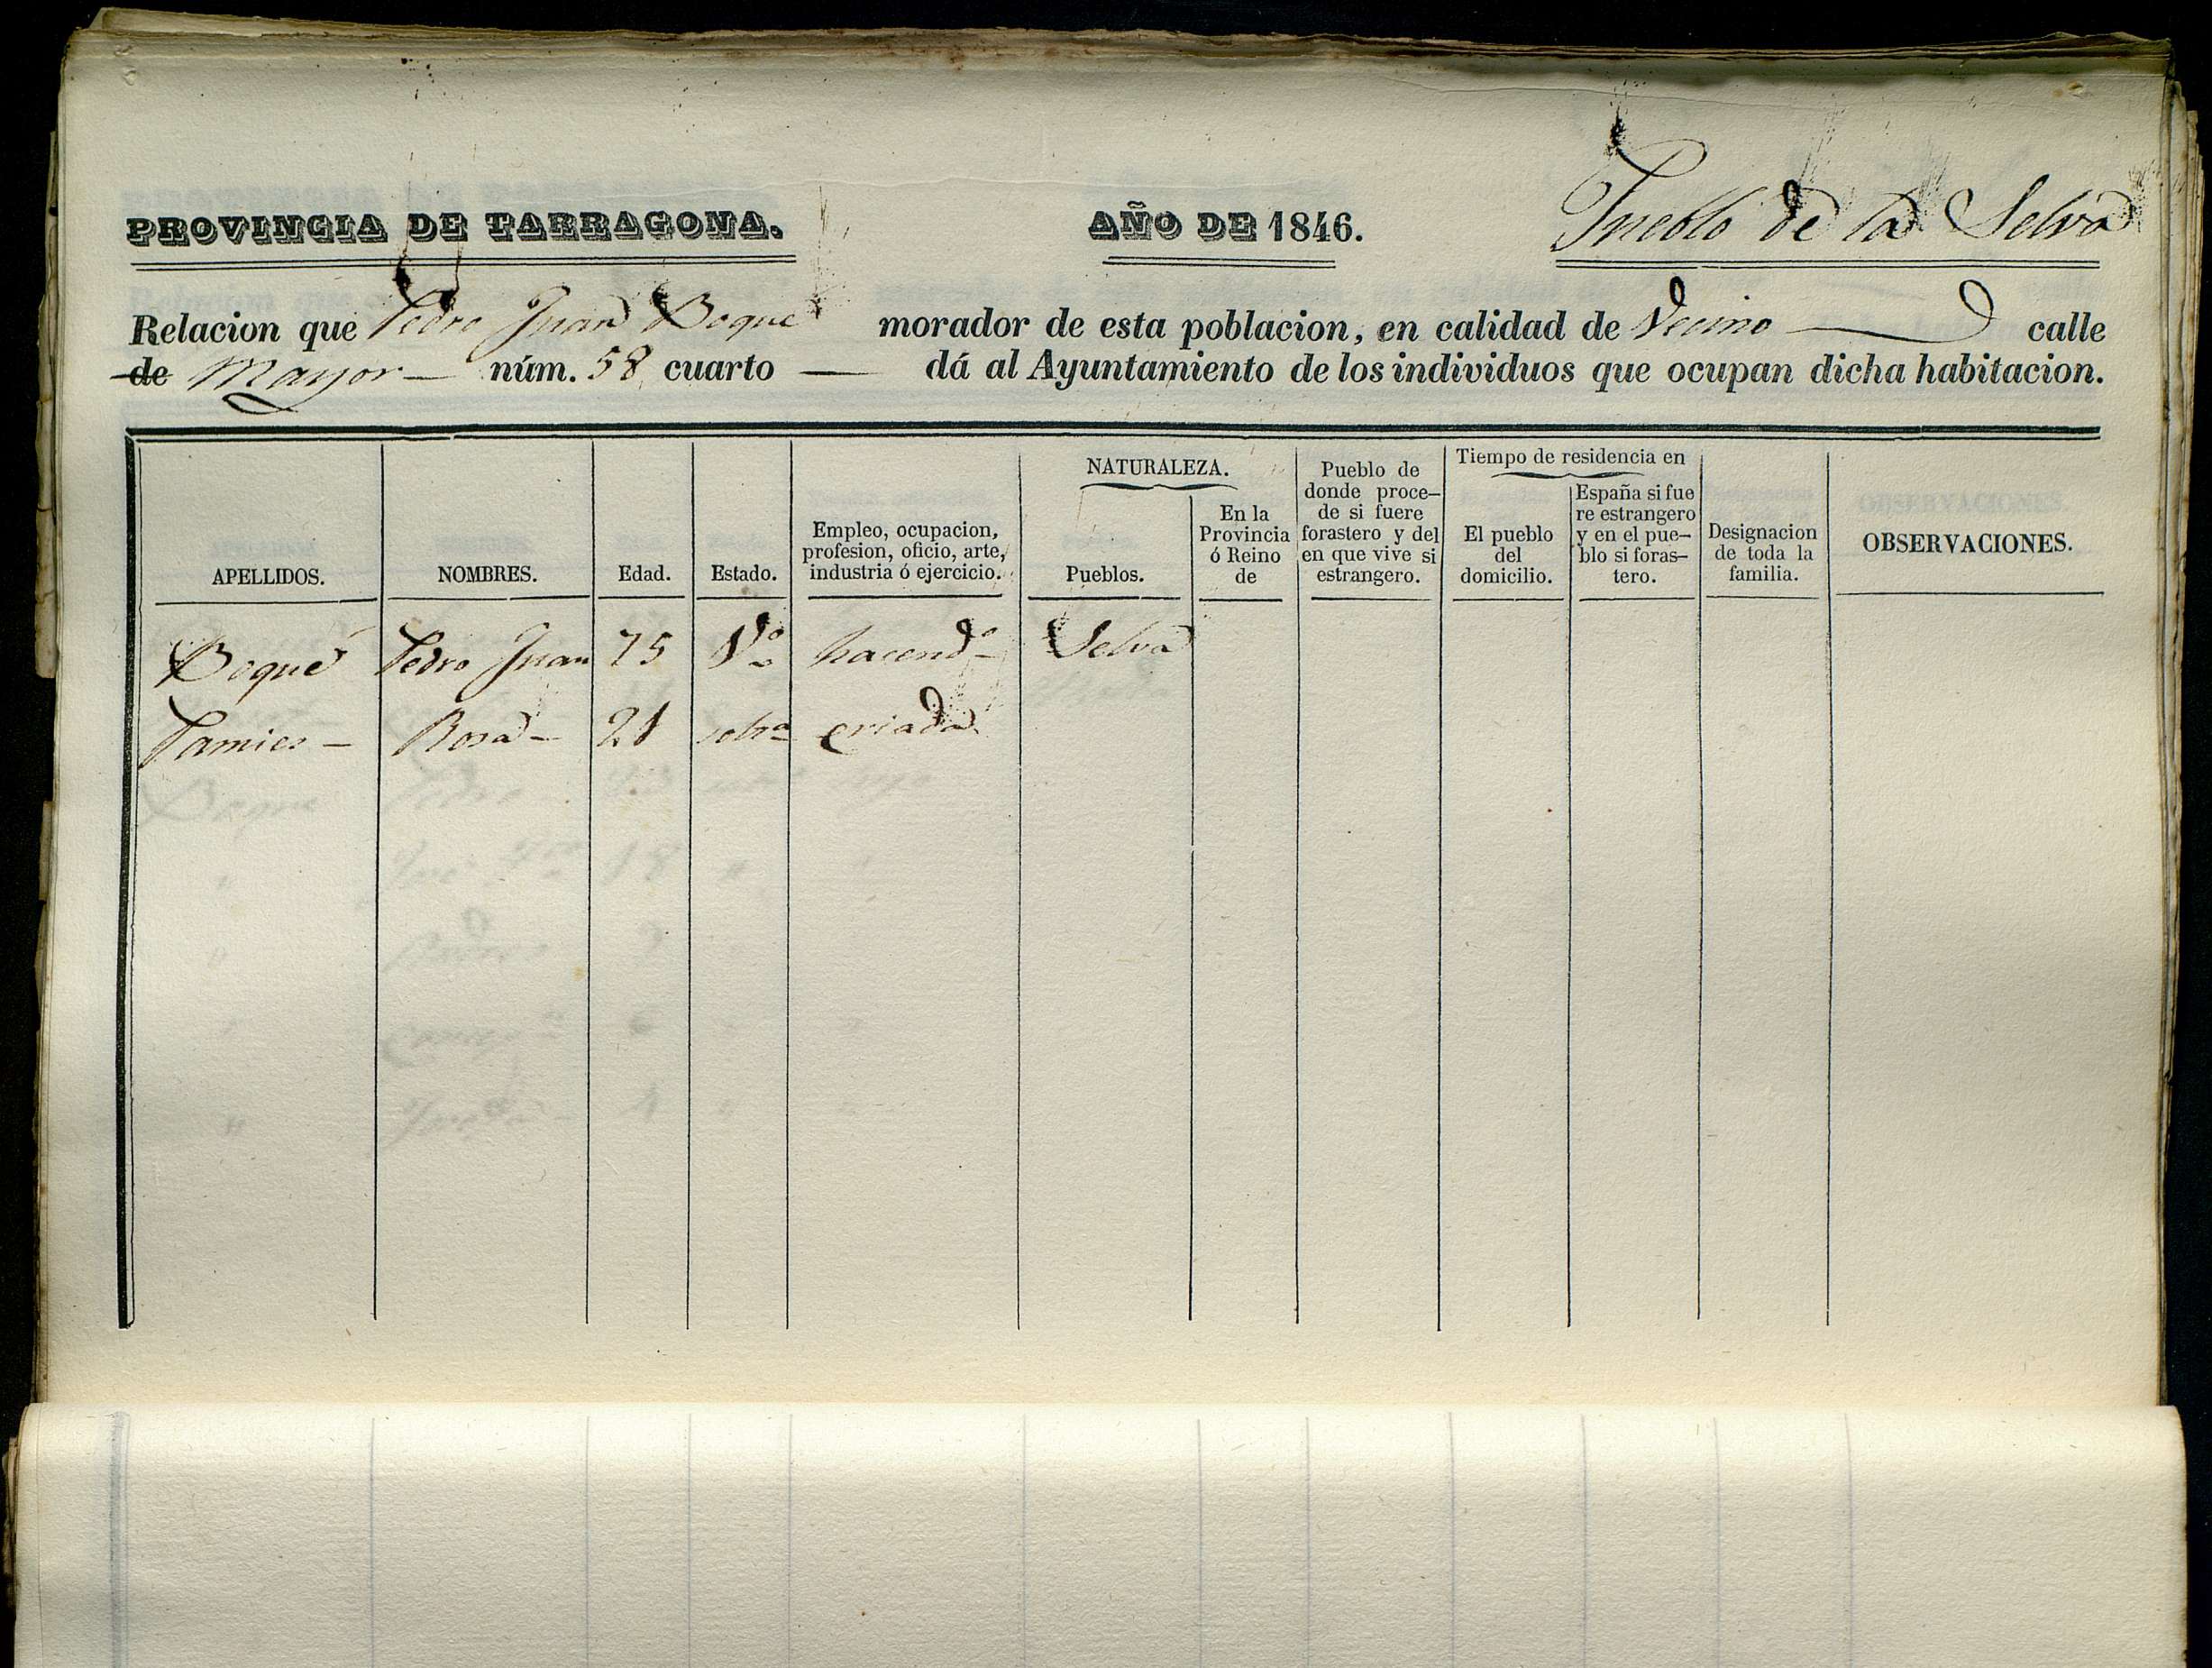 PROVINCIA DE TARRAGONA. AÑO DE 1846. Pueblo de la Selva
Relacion que Pedro Juan Boqué morador de esta poblacion, en calidad de Vecino calle
de Mayor — núm. 58 cuarto — dá al Ayuntamiento de los individuos que ocupan dicha habitacion.
APELLIDOS.
NOMBRES.
Edad.
Estado.
Empleo, ocupacion,
profesion, oficio, arte,
industria ó ejercicio.
NATURALEZA.
Pueblos.
En la
Provincia
ó Reino
de
Pueblo de
donde proce-
de si fuere
forastero y del
en que vive si
estrangero.
Tiempo de residencia en
El pueblo
del
domicilio.
España si fue
re estrangero
y en el pue-
blo si foras-
tero.
Designacion
de toda la
familia.
OBSERVACIONES.
Boqué Pedro Juan 75 Vo hacendo Selva
Tamies — Rosa — 21 solta criada